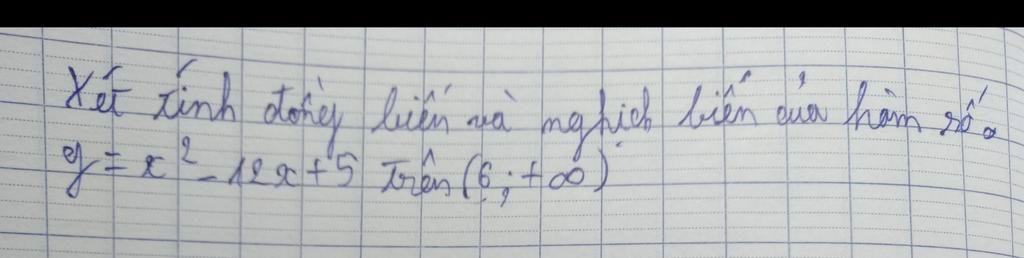 Xét tính đồng biến và nghịch biến của hàm số
y = x² - 12x + 5 trên (6; +∞)